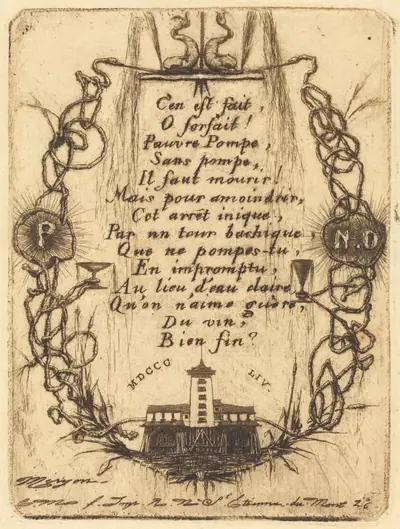 C'en est fait,
O forfait!
Pauvre Pompe,
Sans pompe,
Il faut mourir!
Mais pour amoindrir,
Cet arrêt inique,
Par un tour bachique,
Que ne pompes-tu,
En impromptu,
Au lieu d'eau claire
Qu'on n'aime guère,
Du vin,
Bien fin?
P.
N.D
MDCCC LIV.
Meryon
Imp. R. Nve St Etienne du Mont 26